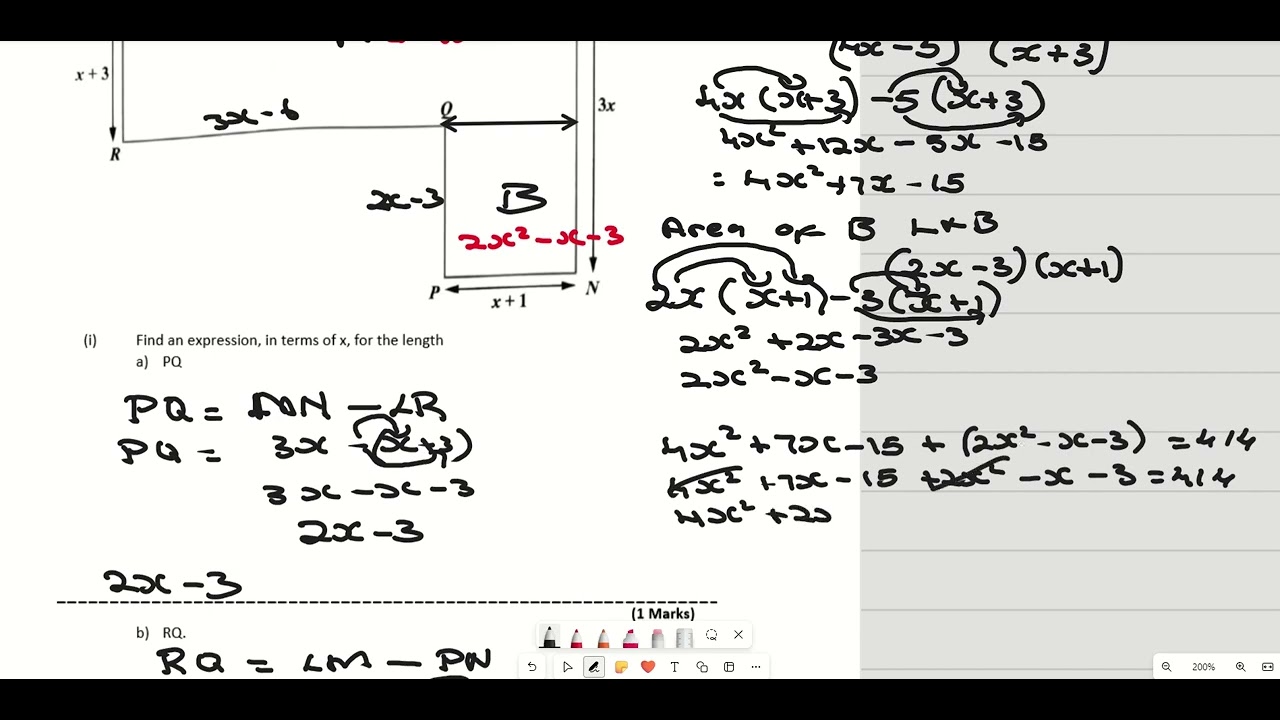 x + 3
3x - 6
Q
3x
R
2x - 3
B
2x² - x - 3
P
x + 1
N
(i) Find an expression, in terms of x, for the length
a) PQ
PQ = MN - LR
PQ = 3x - (x+3)
3x - x - 3
2x - 3
2x - 3
(1 Marks)
b) RQ.
RQ = LM - PN
(4x - 5) (x + 3)
4x (x+3) - 5 (x+3)
4x² + 12x - 5x - 15
= 4x² + 7x - 15
Area of B L×B
(2x - 3) (x+1)
2x (x+1) - 3 (x+1)
2x² + 2x - 3x - 3
2x² - x - 3
4x² + 7x - 15 + (2x² - x - 3) = 414
4x² + 7x - 15 + 2x² - x - 3 = 414
4x² + 2x
200%